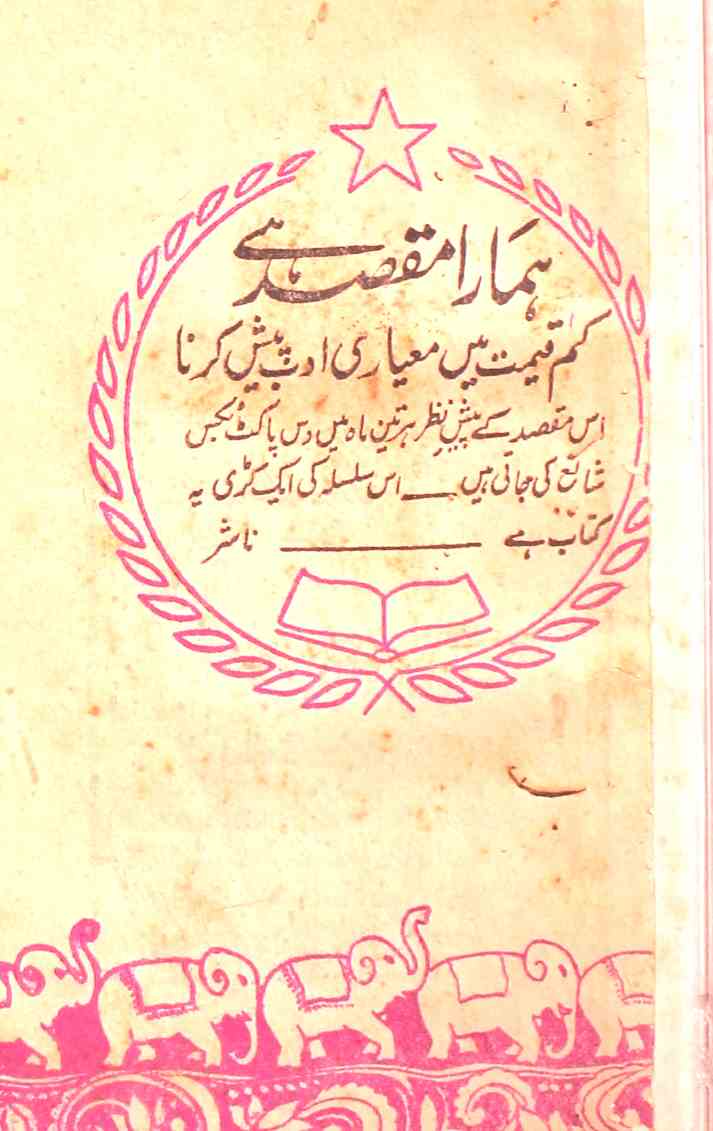 ہمارا مقصد ہے
کم قیمت میں معیاری ادب پیش کرنا
اس مقصد کے پیشِ نظر ہر تین ماہ میں دس پاکٹ بکس
شائع کی جاتی ہیں ـــ اس سلسلہ کی ایک کڑی یہ
کتاب ہے ـــــــــ ناشر